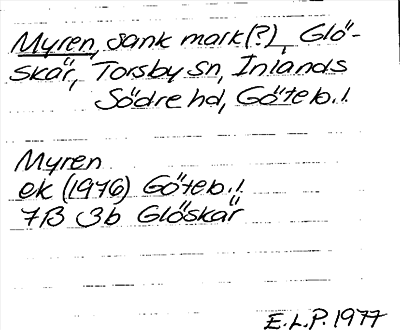 Myren, sank mark(?), Glö-
skär, Torsby sn, Inlands
Södre hd, Göteb.l.
Myren
ek (1976) Göteb.l.
7B 3b Glöskär
E.L.P. 1977